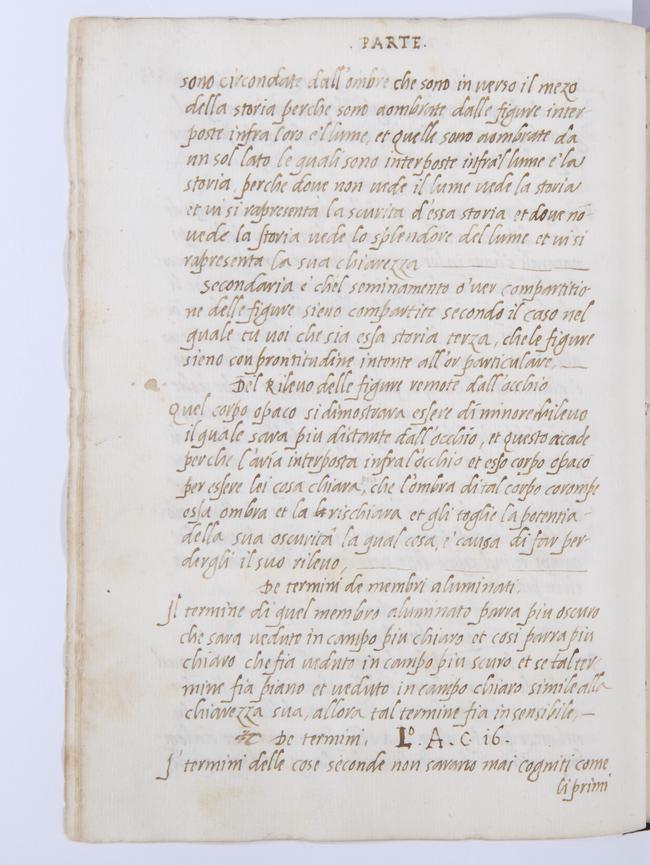 . PARTE.
sono circondate dall'ombre che sono in verso il mezo
della storia perche sono aombrate dalle figure inter-
poste infra loro e'l lume, et quelle sono aombrate da
un sol lato le quali sono interposte infra'l lume e la
storia, perche dove non vede il lume vede la storia
et vi si rapresenta la scurita d'essa storia et dove nō
vede la storia vede lo splendore del lume et vi si
rapresenta la sua chiarezza
Secondaria è ch'el seminamento o'ver compartitio-
ne delle figure sieno compartite secondo il caso nel
quale tu voi che sia essa storia terza, che le figure
sieno con prontitudine intente all'or particulare,
Del Rilevo delle figure remote dall'occhio
Quel corpo opaco si dimostrara essere di minore rilievo
il quale sara piu distante dall'occhio, et questo accade
perche l'aria interposta infra l'occhio et esso corpo opaco
per essere lei cosa chiara, che l'ombra di tal corpo corompe
essa ombra et la rischiara et gli toglie la potentia
della sua oscurità la qual cosa, è causa di far per-
dergli il suo rilevo,
De termini de membri aluminati
Il termine di quel membro alumnato parra piu oscuro
che sara veduto in campo piu chiaro et cosi parra piu
chiaro che fia veduto in campo piu scuro et se tal ter-
mine fia piano et veduto in campo chiaro simile alla
chiarezza sua, allora tal termine fia insensibile,
De termini, Lo. A. C 16.
I termini delle cose seconde non sarano mai cogniti come
li primi